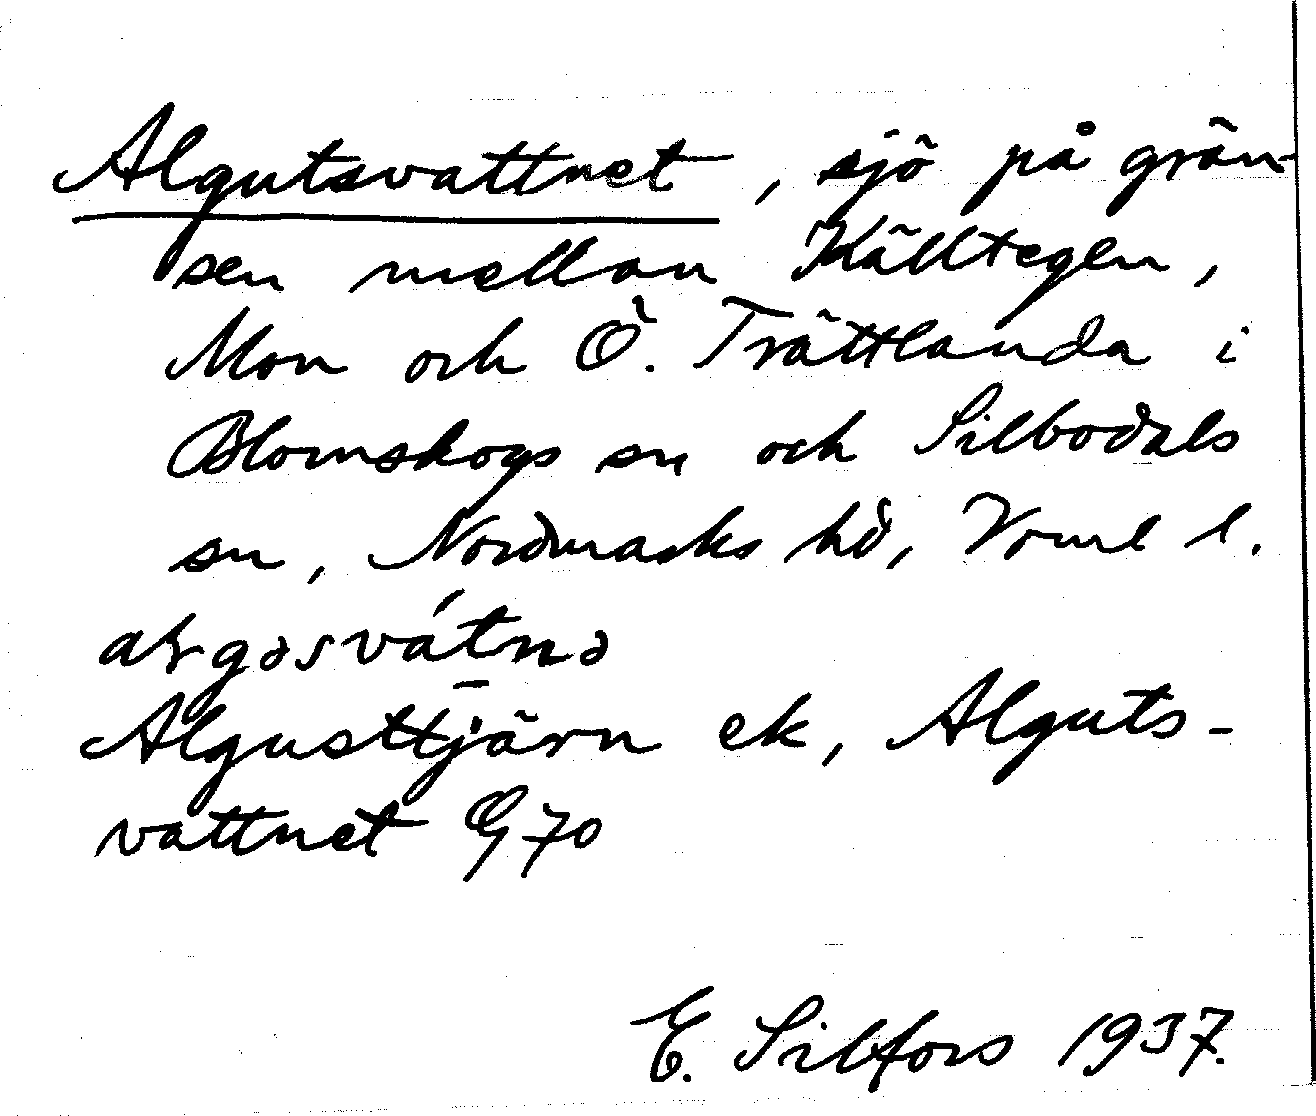 Algutsvattnet, sjö på grän-
sen mellan Källtegen,
Mon och Ö. Trättlanda i
Blomskogs sn och Silbodals
sn, Nordmarks hd, Vrml l.
Algusttjärn ek, Alguts-
vattnet G 70
E. Silfors 1937.